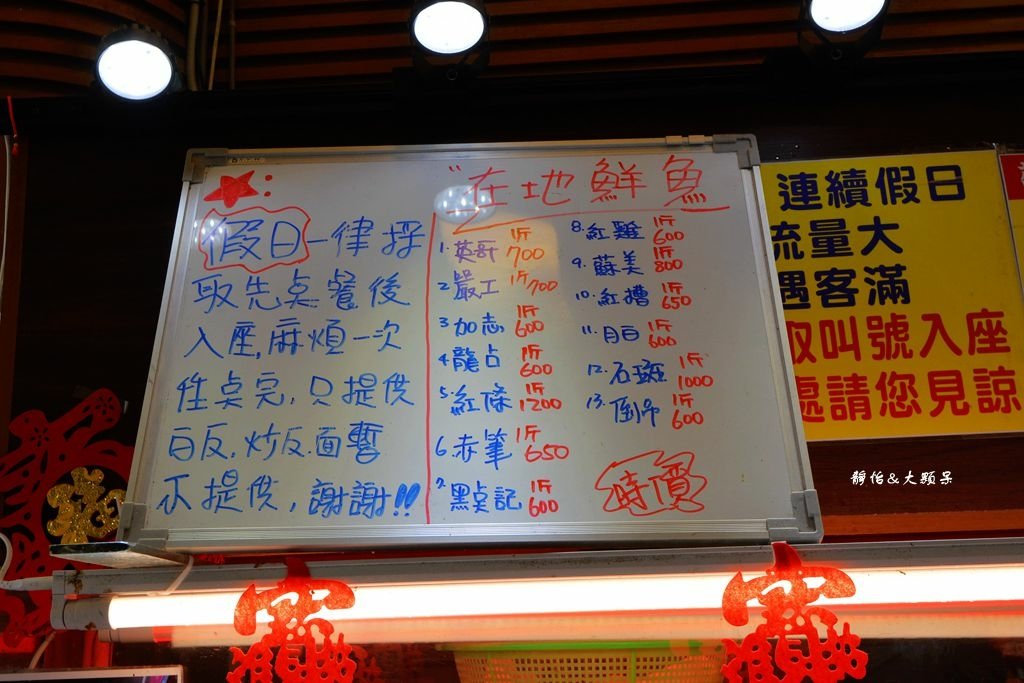 ★:
假日一律採
取先桌餐後
入座,麻煩一次
性桌完,只提供
白反,炒反.面暫
不提供,謝謝!!
"在地鮮魚
1.英哥 1斤700
2嚴工 1斤700
3加志 1斤600
4.龍占 1斤600
5.紅條 1斤1200
6.赤筆 1斤650
7.黑点記 1斤600
8.紅雞 1斤600
9.蘇美 1斤800
10.紅糟 1斤650
11.月白 1斤600
12.石斑 1斤1000
13.倒吊 1斤600
時價
連續假日
流量大
遇客滿
取叫號入座
處請您見諒
靜怡&大顆呆